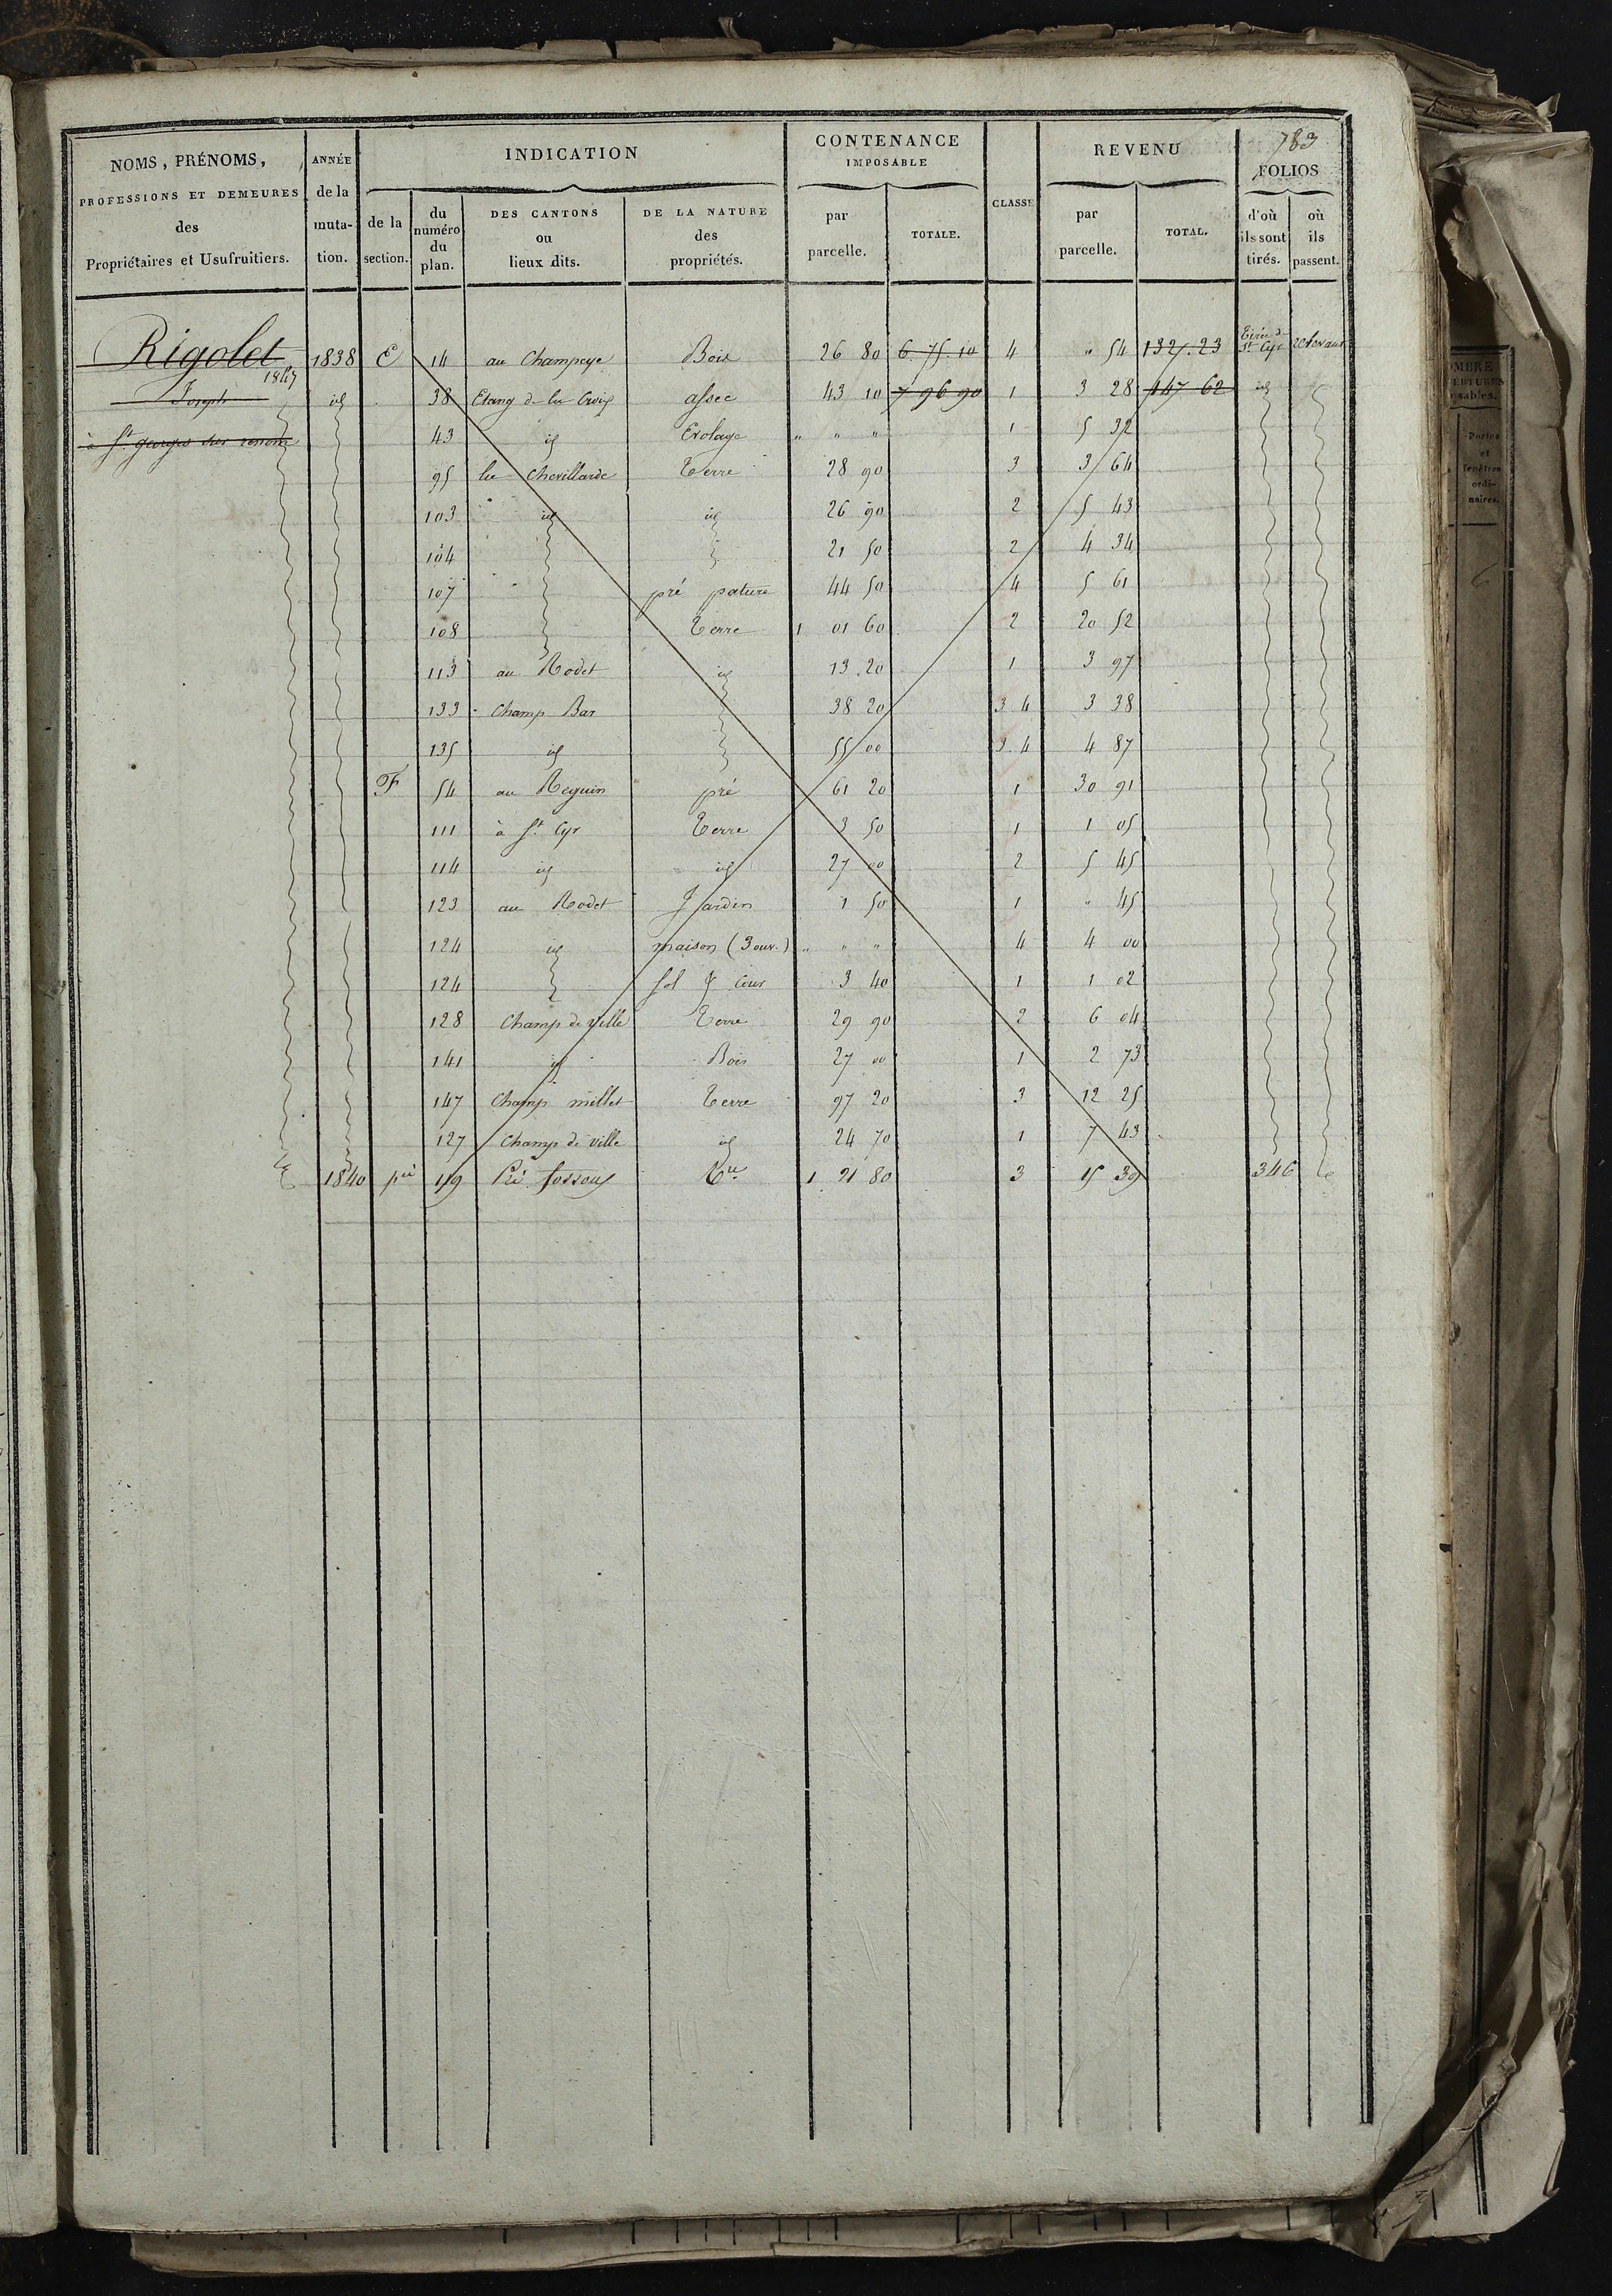 783
NOMS, PRÉNOMS,
PROFESSIONS ET DEMEURES
des
Propriétaires et Usufruitiers.
ANNÉE
de la
muta-
tion.
INDICATION
de la
section.
du
numéro
du
plan.
DES CANTONS
ou
lieux dits.
DE LA NATURE
des
propriétés.
CONTENANCE
IMPOSABLE
par
parcelle.
TOTALE.
CLASSE
REVENU
par
parcelle.
TOTAL.
FOLIOS
d'où
ils sont
tirés.
où
ils
passent.
Rigolet 1838 E 14 au Champeye Bois 26 80 6 75 10 4 " 54 132 23 Tirée de St Cyr
1847
Joseph id 38 Etang de la Croix assec 43 10 7 96 90 1 3 28 147 62 id
à St georges sur renom 43 id Evolage " " " 1 5 32
95 la Chevillarde Terre 28 90 3 3 64
103 id id 26 90 2 5 43
104 21 50 2 4 34
107 pré pature 44 50 4 5 61
108 Terre 1 01 60 2 20 52
113 au Rodet id 13 20 1 3 97
133 Champ Bar 38 20 3 4 3 38
135 id 55 00 3 4 4 87
F 54 au Reguin pré 61 20 1 30 91
111 à St Cyr Terre 3 50 1 1 05
114 id id 27 00 2 5 45
123 au Rodet Jardin 1 50 1 " 45
124 id maison (3 ouv.) " " " 4 4 00
124 Sol & Cour 3 40 1 1 02
128 Champ de ville Terre 29 90 2 6 04
141 id Bois 27 00 1 2 73
147 Champ millet Terre 97 20 3 12 25
127 Champ de ville id 24 70 1 7 43
1840 119 Pré fossoux Tre 1 21 80 3 15 39 346
OMBRE
ERTURES
osables.
Portes
et
fenêtres
ordi-
naires.
6